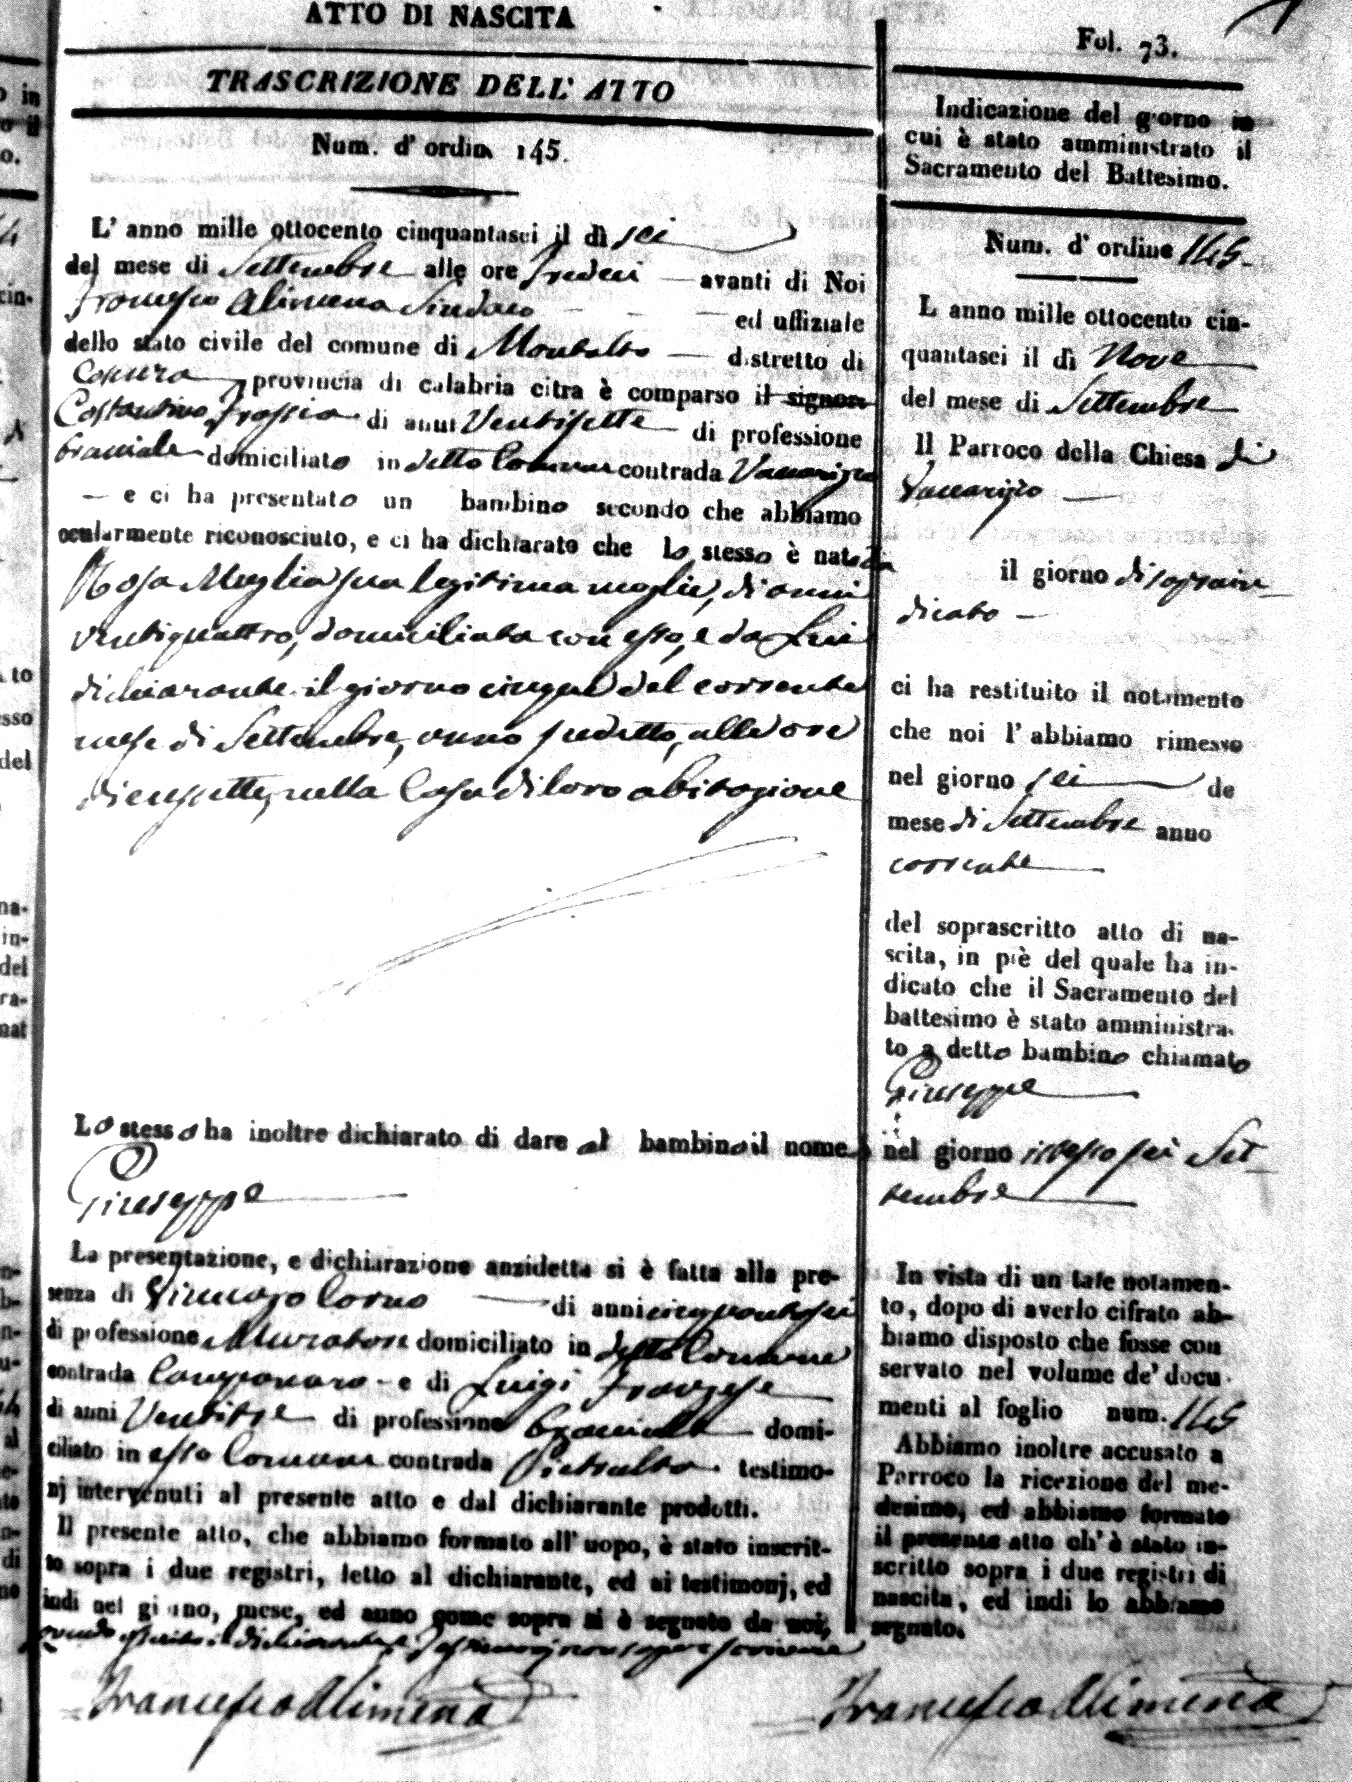 ATTO DI NASCITA
TRASCRIZIONE DELL' ATTO
Num. d' ordin 145.
L' anno mille ottocento cinquantasei il dì sei
del mese di Settembre alle ore tredeci avanti di Noi
Francesco Alimena Sindaco ed uffiziale
dello stato civile del comune di Montalto distretto di
Cosenza provincia di calabria citra è comparso il signor
Costantino di anni Ventisette di professione
bracciale domiciliato in detto Comune contrada Vaccarizzo
e ci ha presentato un bambino secondo che abbiamo
ocularmente riconosciuto, e ci ha dichiarato che lo stesso è nato da
Rosa Muglia sua legitima moglie, di anni
ventiquattro, domiciliata con esso, e da Lui
dichiarante il giorno cinque del corrente
mese di Settembre, anno sudetto, alle ore
diecisette, nella Casa di loro abitazione
Lo stesso ha inoltre dichiarato di dare al bambino il nome
Giuseppe
La presentazione, e dichiarazione anzidetta si è fatta alla pre-
senza di Gennaro Corno di anni cinquantasei
di professione Muratore domiciliato in detto Comune
contrada e di Luigi Franzese
di anni Ventitre di professione bracciale domi-
ciliato in esso Comune contrada Pietralta testimo-
nj intervenuti al presente atto e dal dichiarante prodotti.
Il presente atto, che abbiamo formato all' uopo, è stato inscrit-
to sopra i due registri, letto al dichiarante, ed ai testimonj, ed
indi nel giorno, mese, ed anno come sopra si è segnato da noi,
avendo asserito il dichiarante e testimonj non sapere scrivere
Francesco Alimena
Fol. 73.
Indicazione del giorno in
cui è stato amministrato il
Sacramento del Battesimo.
Num. d' ordine 145
L anno mille ottocento cin-
quantasei il dì Nove
del mese di Settembre
Il Parroco della Chiesa di
Vaccarizzo
il giorno di soprain
dicato
ci ha restituito il notamento
che noi l' abbiamo rimesso
nel giorno sei de
mese di Settembre anno
corrente
del soprascritto atto di na-
scita, in piè del quale ha in-
dicato che il Sacramento del
battesimo è stato amministra-
to a detto bambino chiamato
Giuseppe
nel giorno istesso sei Set
tembre
In vista di un tale notamen-
to, dopo di averlo cifrato ab-
biamo disposto che fosse con
servato nel volume de' docu-
menti al foglio num. 145
Abbiamo inoltre accusato a
Parroco la ricezione del me-
desimo, ed abbiamo formato
il presente atto ch' è stato in-
scritto sopra i due registri di
nascita, ed indi lo abbiamo
segnato.
Francesco Alimena